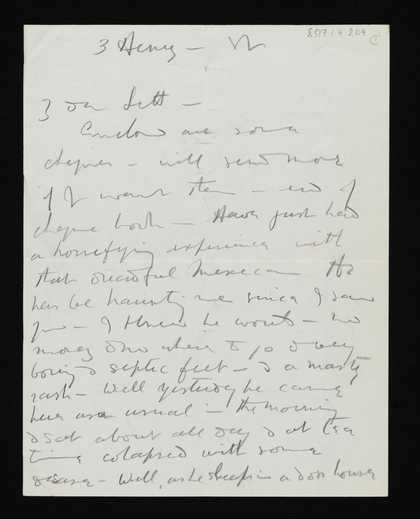 3 Henry -
Enclosed are some
cheques - will send more
if I want them - end of
cheque book - Have just had
a horrifying experience with
that dreadful Mexican He
has be haunting me since I saw
you - I think he wants - no
money or where to go & very
boring & septic feet - & a nasty
rash - well yesterday he came
here as usual - the morning
& sat about all day & at tea
time colapsed with some
- Well, as he sleeps in a doss house